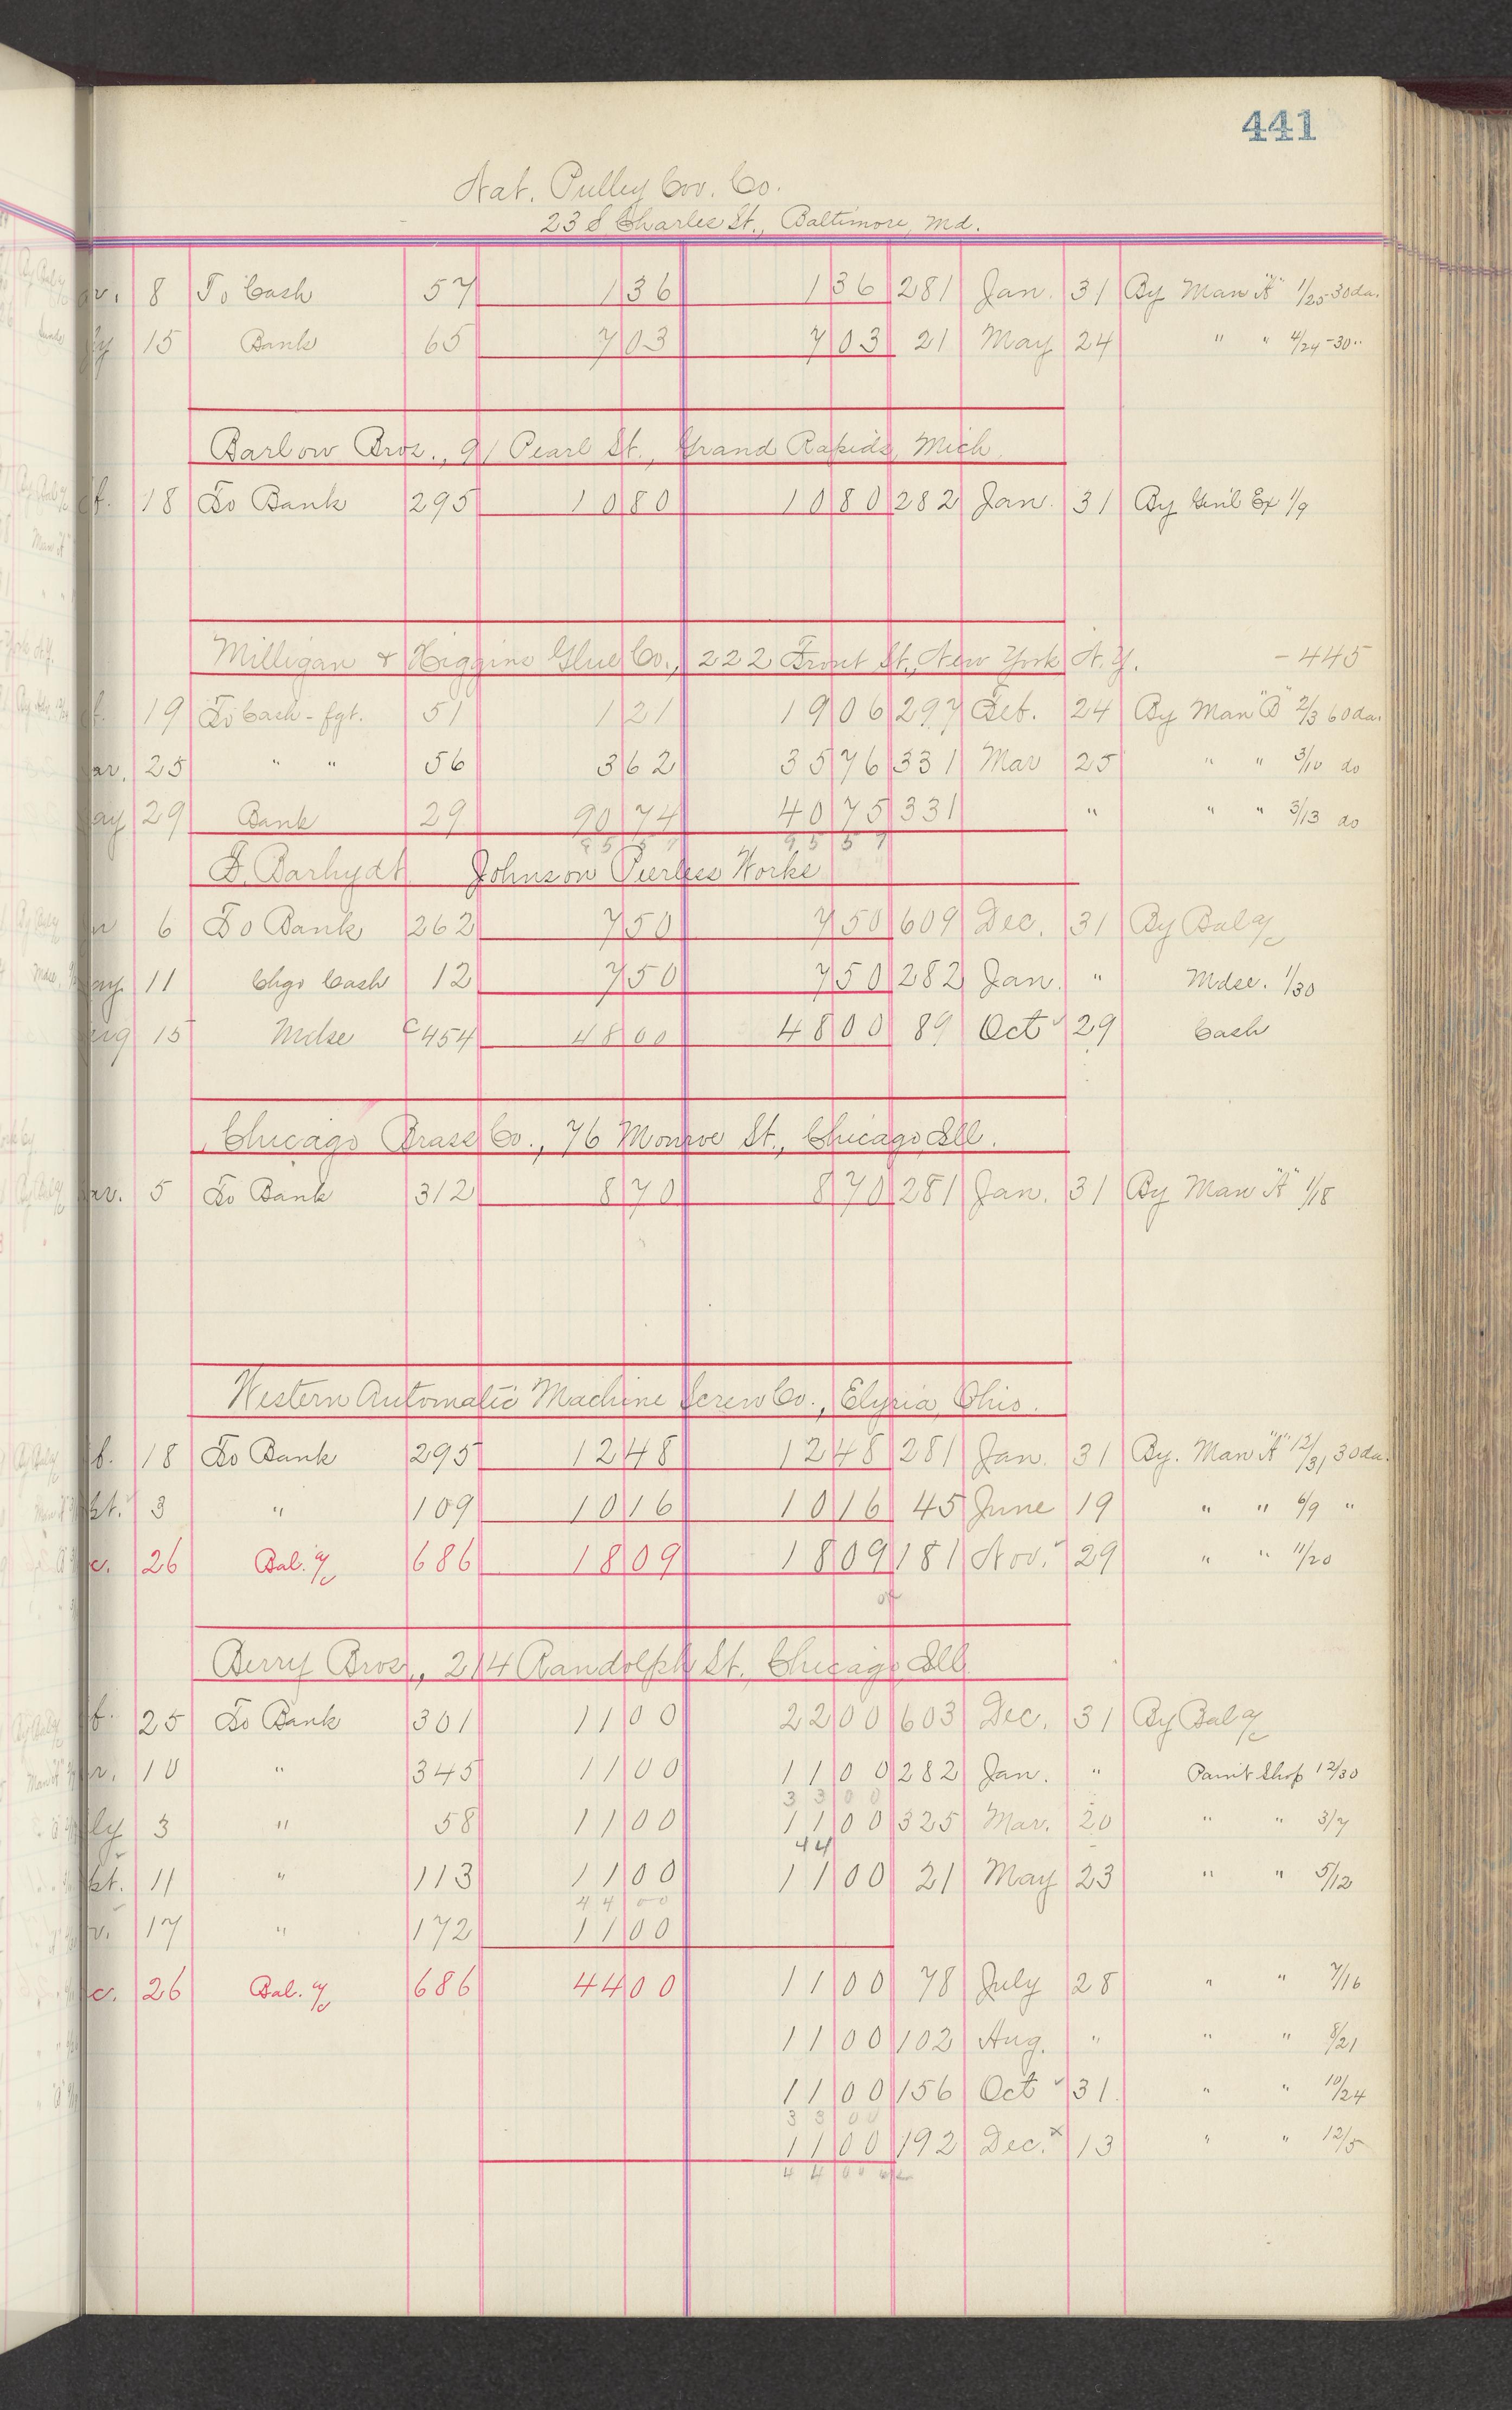 441
Nat. Pulley Cov. Co.
23 S Charles St., Baltimore, Md.
8 To Cash 57 1 36 1 36 281 Jan. 31 By Man "A" 1/25-30da.
15 Bank 65 7 03 7 03 21 May 24 " " 4/24-30"
Barlow Bros., 91 Pearl St., Grand Rapids, Mich.
18 To Bank 295 10 80 10 80 282 Jan. 31 By Gen'l Ex 1/9
Milligan & Higgins Glue Co., 222 Front St., New York N.Y. - 445
19 To Cash - fgt. 51 1 21 19 06 297 Feb. 24 By Man "B" 2/3 60da.
25 " " 56 3 62 35 76 331 Mar 25 " " 3/10 do
29 Bank 29 90 74 40 75 331 " " " 3/13 do
95 57 95 57
F. Barhydt Johnson Peerless Works
6 To Bank 262 7 50 7 50 609 Dec. 31 By Bal a/c
11 Chgo Cash 12 7 50 7 50 282 Jan. " Mdse. 1/30
15 Mdse C454 48 00 48 00 89 Oct 29 Cash
Chicago Brass Co., 76 Monroe St., Chicago, Ill.
5 To Bank 312 8 70 8 70 281 Jan. 31 By Man "A" 1/18
Western Automatic Machine Screw Co., Elyria, Ohio.
18 To Bank 295 12 48 12 48 281 Jan. 31 By. Man "A" 12/31 30da.
3 " 109 10 16 10 16 45 June 19 " " 6/9 "
26 Bal. a/c 686 18 09 18 09 181 Nov. 29 " " 11/20
Berry Bros., 214 Randolph St., Chicago, Ill.
25 To Bank 301 11 00 22 00 603 Dec. 31 By Bal a/c
10 " 345 11 00 11 00 282 Jan. " Paint Shop 12/30
33 00
3 " 58 11 00 11 00 325 Mar. 20 " " 3/7
44
11 " 113 11 00 11 00 21 May 23 " " 5/12
44 00
17 " 172 11 00
26 Bal. a/c 686 44 00 11 00 78 July 28 " " 7/16
11 00 102 Aug. " " " 8/21
11 00 156 Oct 31 " " 10/24
33 00
11 00 192 Dec. 13 " " 12/5
44 00